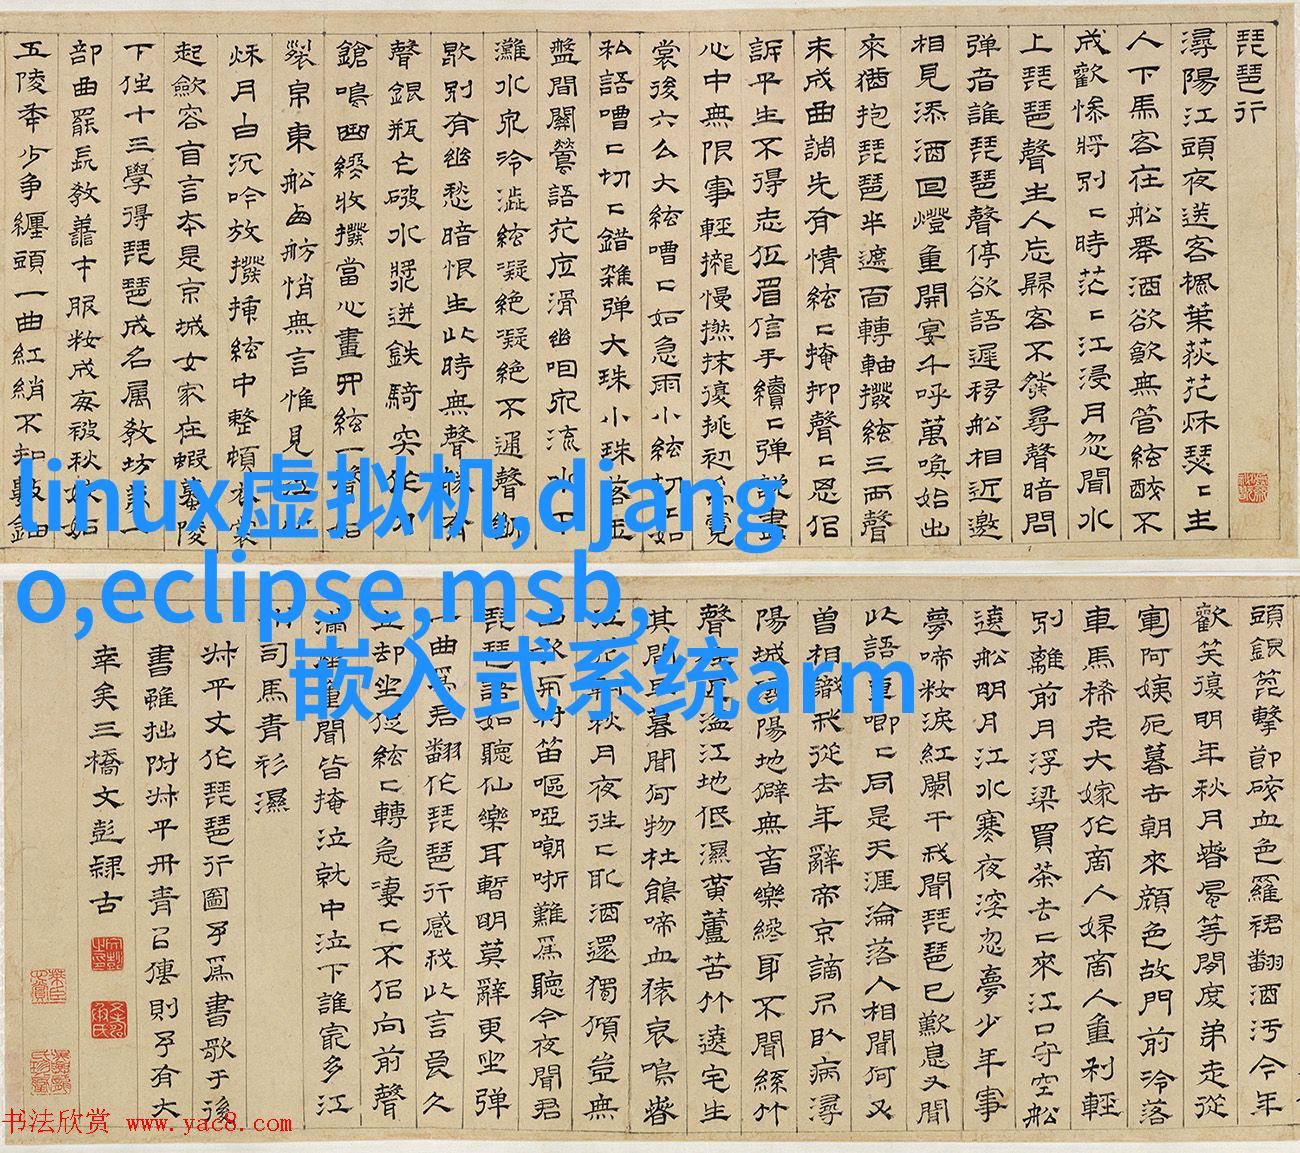 琵琶行
潯陽江頭夜送客楓葉荻花秌瑟〻主
人下馬客在船舉酒欲飲無管絃醉不
成歡慘將別〻時茫〻江浸月忽聞水
上琵琶聲主人忘歸客不發尋聲暗問
彈者誰琵琶聲停欲語遲移船相近邀
相見添酒回燈重開宴千呼萬喚始出
來猶抱琵琶半遮面轉軸撥絃三兩聲
未成曲調先有情絃〻掩抑聲〻思佀
訴平生不得志低眉信手續〻彈說盡
心中無限事輕攏慢撚抹復挑初為霓
裳後六么大絃嘈〻如急雨小絃切〻如
私語嘈〻切〻錯雜彈大珠小珠落玉
盤間關鶯語花底滑幽咽泉流水下
灘水泉冷澁絃凝絕凝絕不通聲漸
歇別有幽愁暗恨生此時無聲勝有
聲銀瓶乍破水漿迸鉄騎突出刀
鎗鳴曲終收撥當心畫四絃一聲如
裂帛東船西舫悄無言惟見江心
秌月白沉吟放撥插絃中整頓衣裳
起斂容自言本是京城女家在蝦蟇陵
下住十三學得琵琶成名属教坊第一
部曲罷長教善才服粧成每被秋娘妬
五陵年少爭纏頭一曲紅綃不知數鈿
linux虚拟机,djang
o,eclipse,msb,
嵌入式系统arm
頭銀篦擊節碎血色羅裙翻酒汚今年
歡笑復明年秋月春風等閒度弟走從
軍阿姨死暮去朝來顏色故門前冷落
車馬稀老大嫁作商人婦商人重利輕
別離前月浮梁買茶去〻來江口守空船
遶船明月江水寒夜深忽夢少年事
夢啼粧淚紅闌干我聞琵琶已歎息又聞
此語重唧〻同是天涯淪落人相聞何必
曾相識我從去年辭帝京謫居臥病潯
陽城潯陽地僻無音樂終歲不聞絲竹
聲住近湓江地低濕黄蘆苦竹遶宅生
其間旦暮聞何物杜鵑啼血猿哀鳴春
江花朝秋月夜往〻取酒還獨傾豈無
山歌與村笛嘔啞嘲哳難爲聽今夜聞君
琵琶語如聽仙樂耳暫明莫辭更坐彈
一曲爲君翻作琵琶行感我此言良久
立却坐促絃〻轉急淒〻不佀向前聲
滿座重聞皆掩泣就中泣下誰㝡多江
州司馬青衫濕
叔平丈作琵琶行圖予爲書歌于後
書雖拙附叔平丹青以傳則予有大
幸矣三橋文彭隸古
书法欣赏 www.yac8.com